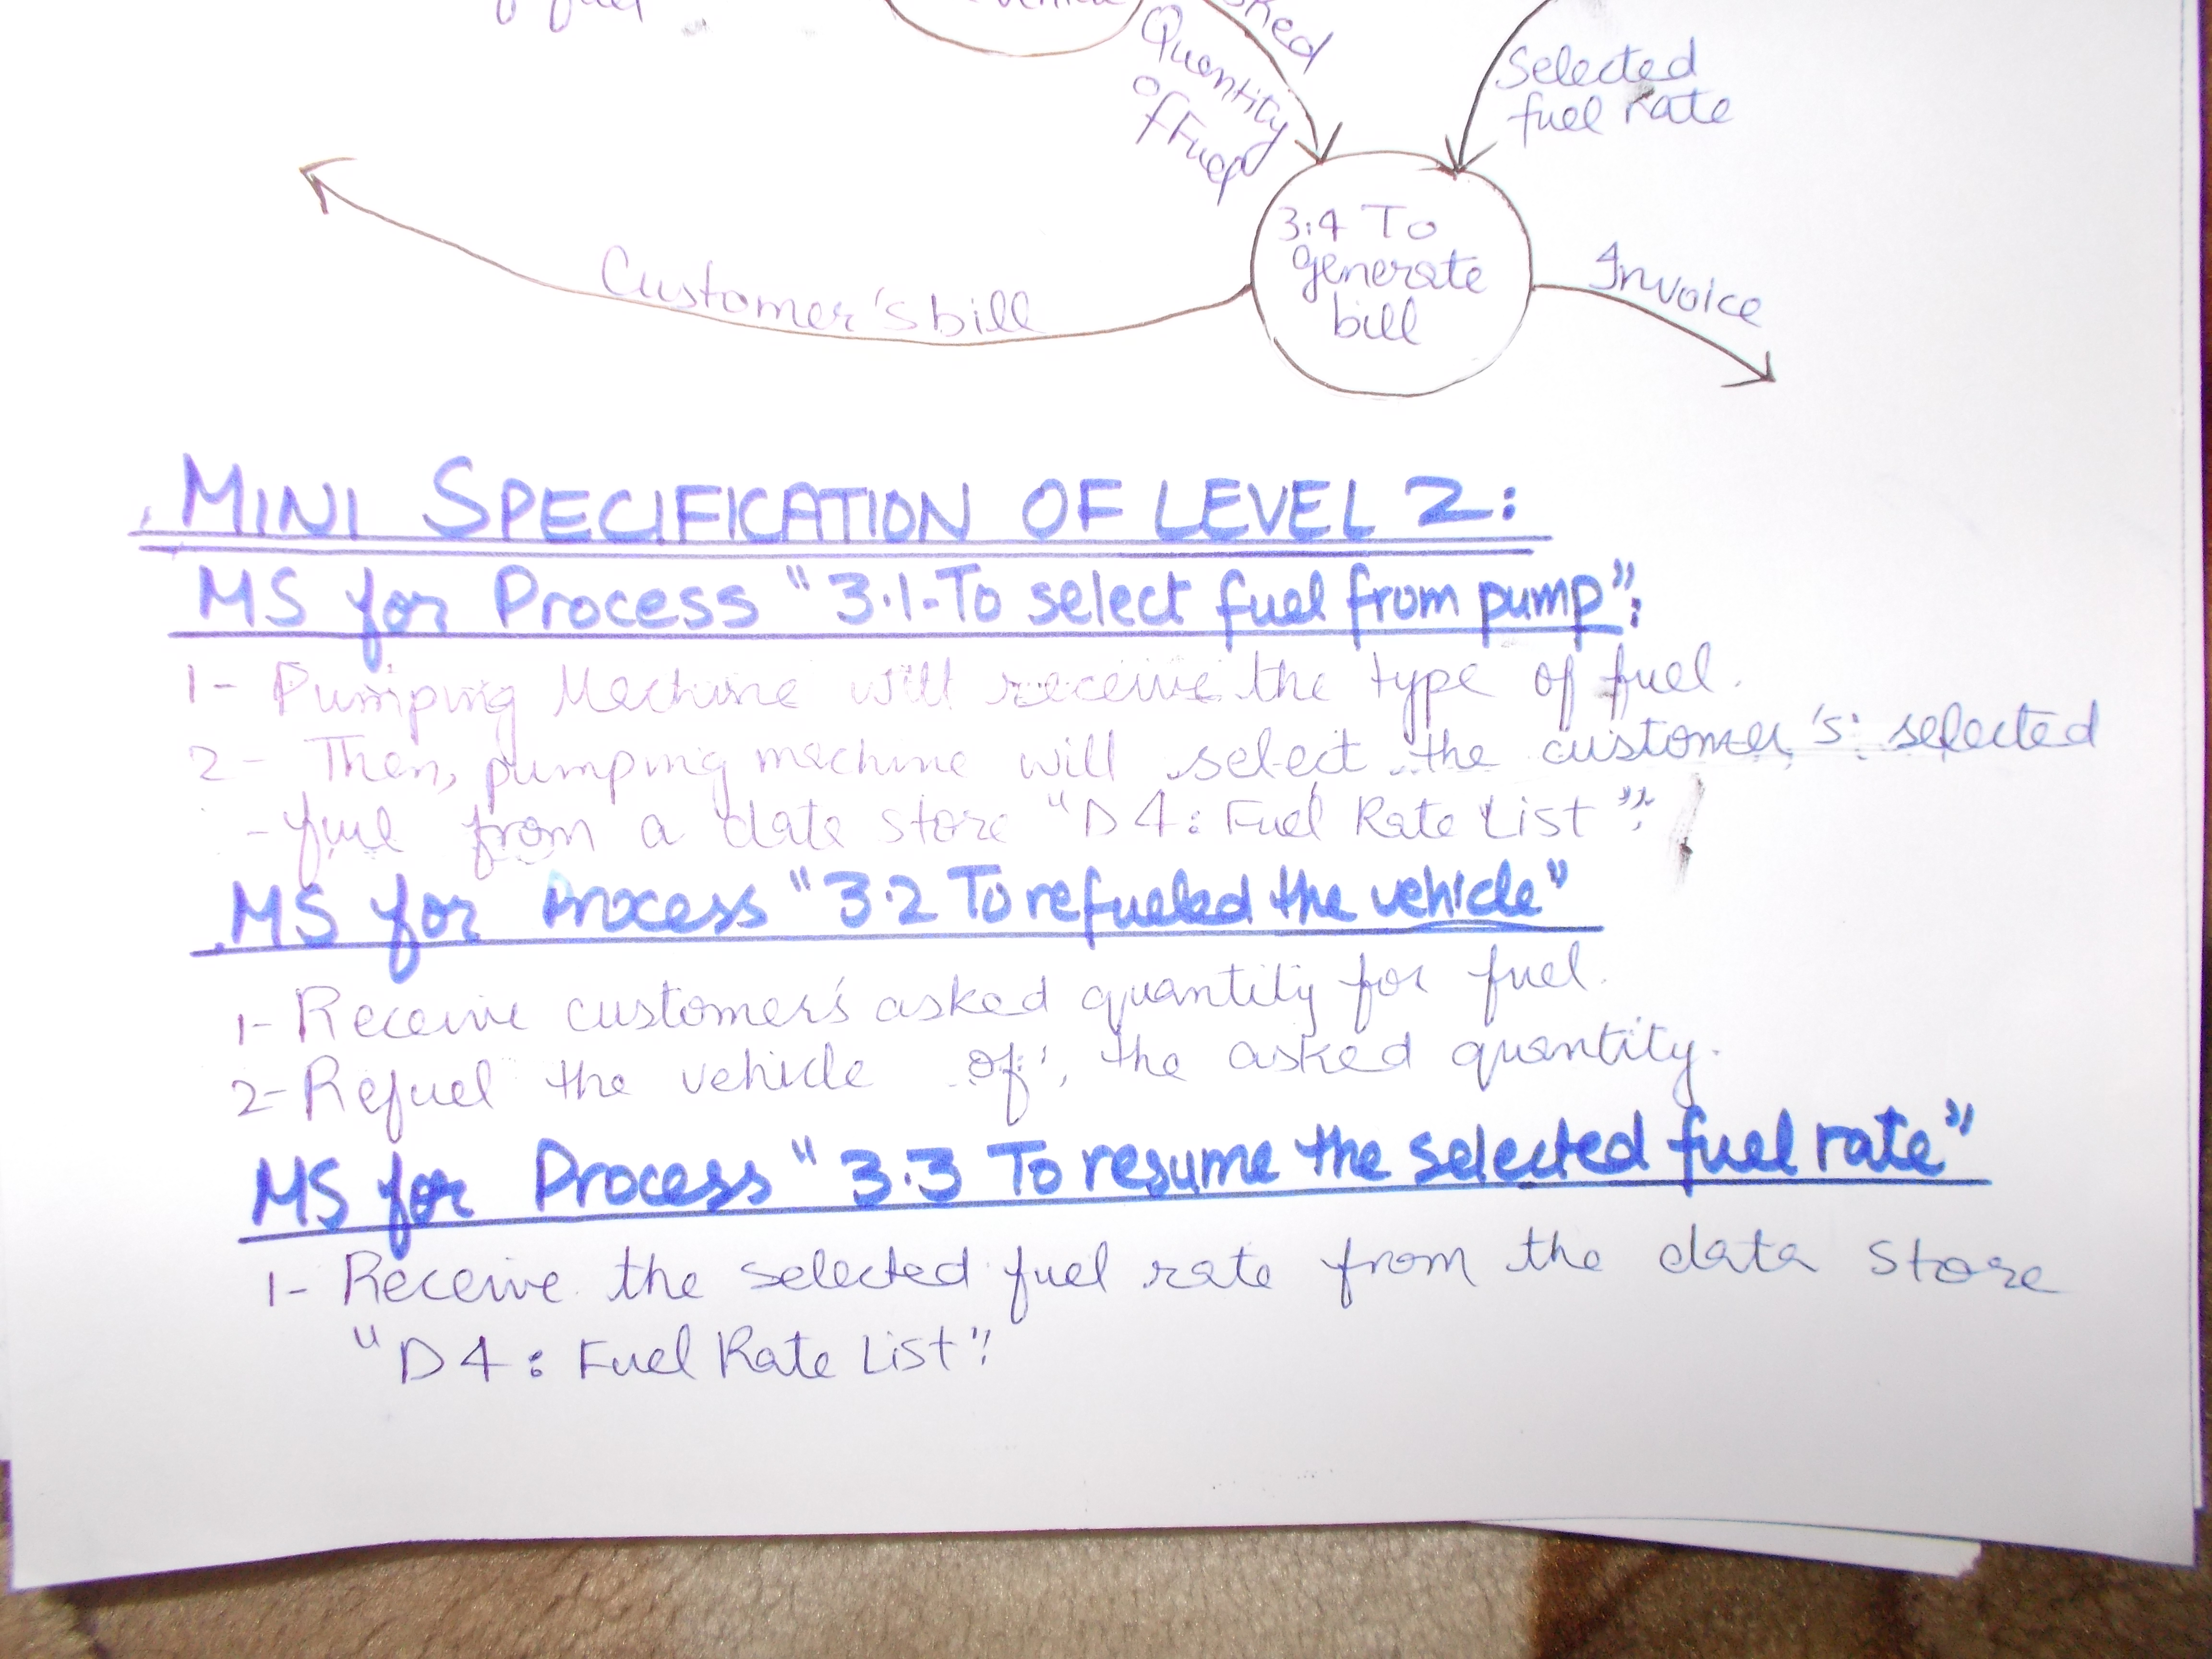 of fuel
Quantity
of Fuel
Selected
fuel rate
3.4 To
generate
bill
Customer's bill
Invoice
MINI SPECIFICATION OF LEVEL 2:
MS for Process "3.1-To select fuel from pump":
1- Pumping Machine will receive the type of fuel.
2- Then, pumping machine will select the customer's selected
fuel from a data store "D4: Fuel Rate List".
MS for Process "3.2 To refueled the vehicle"
1- Receive customer's asked quantity for fuel.
2- Refuel the vehicle of the asked quantity.
MS for Process "3.3 To resume the selected fuel rate"
1- Receive the selected fuel rate from the data store
"D4: Fuel Rate List".